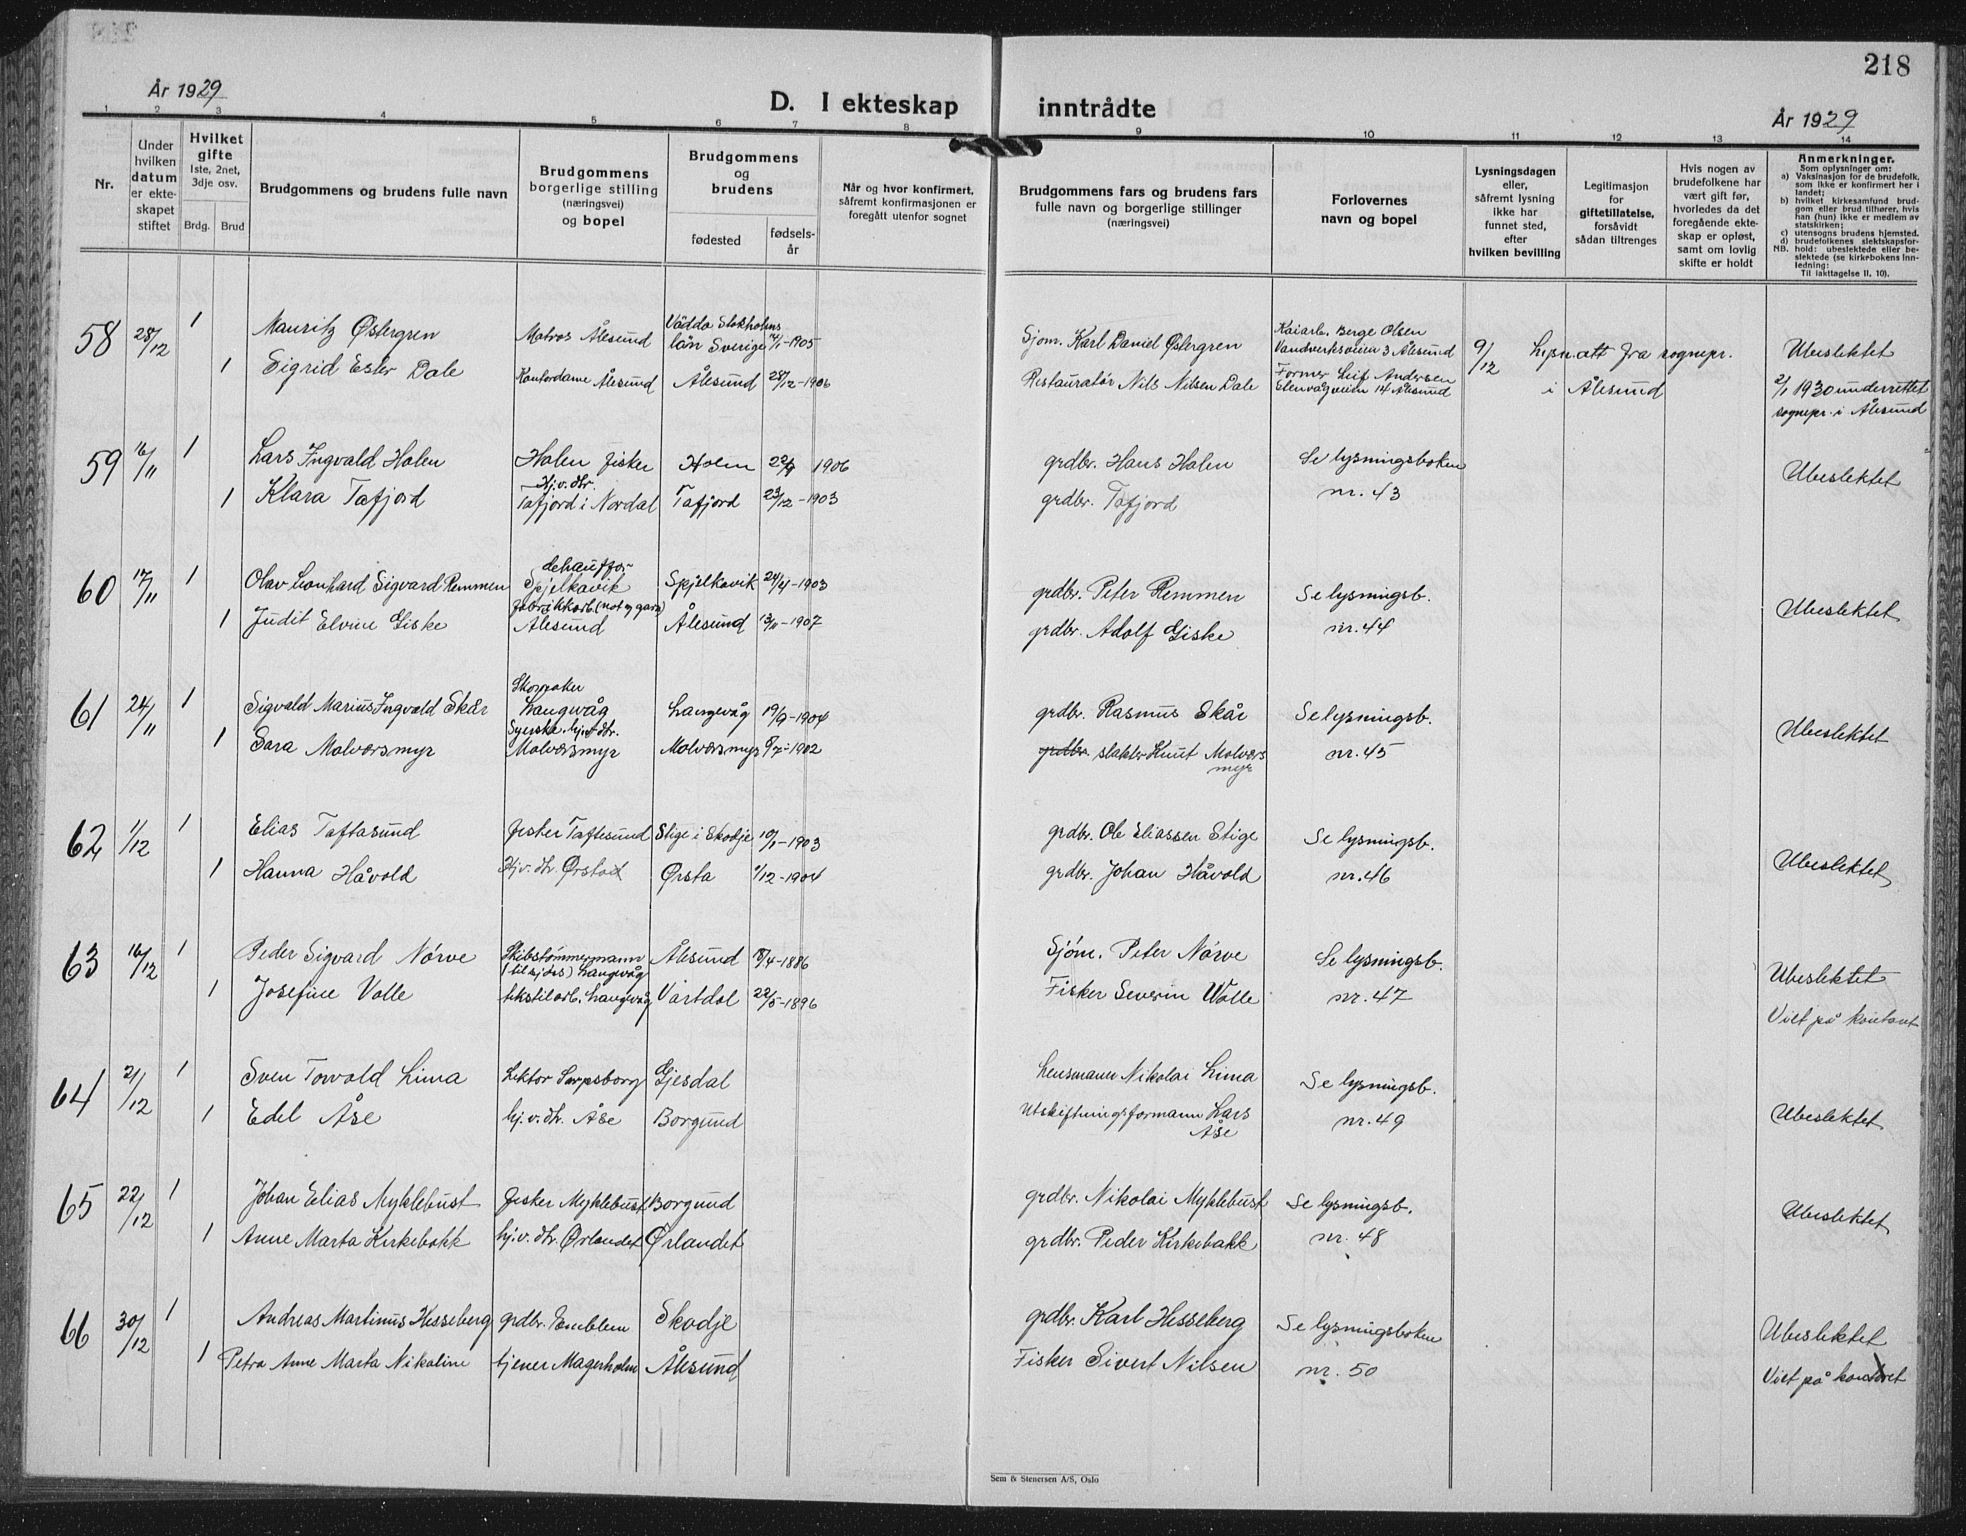 218
År 1929
D. I ekteskap inntrådte
År 1929
1 2 3 4 5 6 7 8 9 10 11 12 13 14
Nr.
Under hvilken datum er ekteskapet stiftet
Hvilket gifte
1ste, 2net, 3dje osv.
Brdg. Brud
Brudgommens og brudens fulle navn
Brudgommens borgerlige stilling (næringsvei) og bopel
Brudgommens og brudens
fødested
fødselsår
Når og hvor konfirmert, såfremt konfirmasjonen er foregått utenfor sognet
Brudgommens fars og brudens fars fulle navn og borgerlige stillinger (næringsvei)
Forlovernes navn og bopel
Lysningsdagen eller, såfremt lysning ikke har funnet sted, efter hvilken bevilling
Legitimasjon for giftetillatelse, forsåvidt sådan tiltrenges
Hvis nogen av brudefolkene har vært gift før, hvorledes da det foregående ekteskap er opløst, samt om lovlig skifte er holdt
Anmerkninger.
Som oplysninger om:
a) Vaksinasjon for de brudefolk, som ikke er konfirmert her i landet;
b) hvilket kirkesamfund brudgom eller brud tilhører, hvis han (hun) ikke er medlem av statskirken;
c) utensogns brudens hjemsted.
d) brudefolkenes slektskapsforhold: ubeslektede eller beslektede (se kirkebokens Innledning:
NB.
Til iakttagelse II, 10).
58 28/12 1 Mauritz Östergren Matros Ålesund Väddo Stokholms län Sverige 14/1-1905 Sjöm. Karl Daniel Östergren Kaiarb. Berge Olsen Vandverksveien 3 Ålesund 9/12 Lysn.att fra sognepr. Ubeslektet
1 Sigrid Ester Dale Kontordame Ålesund Ålesund 28/12-1906 Restauratør Nils Nilsen Dale Former Leif Andersen Elenvågveien 14 Ålesund i Ålesund 2/1 1930 underrettet
sognepr. i Ålesund
59 16/11 1 Lars Ingvald Holen Holen fisker Holen 1906 grdbr. Hans Holen Se lysningsboken Ubeslektet
1 Klara Tafjord Hj.v. dtr. Tafjord i Nordal Tafjord 23/12-1903 grdbr. Tafjord nr. 43
60 17/11 1 Olav Leonhard Sigvard Remmen Spjelkavik Spjelkavik 24/4-1903 grdbr. Peter Remmen Se lysningsb. Ubeslektet
1 Judit Elvine Giske fabrikkarb. (not og garn) Ålesund Ålesund 13/11-1907 grdbr. Adolf Giske nr. 44
61 24/11 1 Sigvald Marius Ingvald Skår Skomaker Langevåg Langevåg 19/9-1904 grdbr. Rasmus Skår Se lysningsb. Ubeslektet
1 Sara Molværsmyr Syerske, hj.v. dtr. Molværsmyr Molværsmyr 8/7-1902 grdbr. slakter Knut Molværsmyr nr. 45
62 1/12 1 Elias Taftasund fisker Taftesund Stige i Skodje 10/1-1903 grdbr. Ole Eliassen Stige Se lysningsb. Ubeslektet
1 Hanna Håvold Hj.v. dtr. Ørsta Ørsta 1/12-1904 grdbr. Johan Håvold nr. 46
63 16/12 1 Peder Sigvard Nørve Skibstømmermann (tilsjøs) Langevåg Ålesund 8/4-1886 Sjöm. Peter Nørve Se lysningsb. Ubeslektet
1 Josefine Volle tekstilarb. Langevåg Vartdal 22/5-1896 Fisker Severin Wolle nr. 47 Viet på kontoret
64 21/12 1 Sven Torvald Lima Lektor Sarpsborg Gjesdal Lensmann Nikolai Lima Se lysningsb. Ubeslektet
1 Edel Åse hj.v. dtr. Åse Borgund Utskiftningsformann Lars Åse nr. 49
65 22/12 1 Johan Elias Myklebust fisker Myklebust Borgund grdbr. Nikolai Myklebust Se lysningsb. Ubeslektet
1 Anne Marta Kirkebakk hj.v. dtr. Ørlandet Ørlandet grdbr. Peder Kirkebakk nr. 48
66 30/12 1 Andreas Martinus Hesseberg grdbr. Emblem Skodje grdbr. Karl Hesseberg Se lysningsboken Ubeslektet
1 Petra Anne Marta Nikoline tjener Magerholm Ålesund Fisker Sivert Nilsen nr. 50 Viet på kontoret
Sem & Stenersen A/S, Oslo